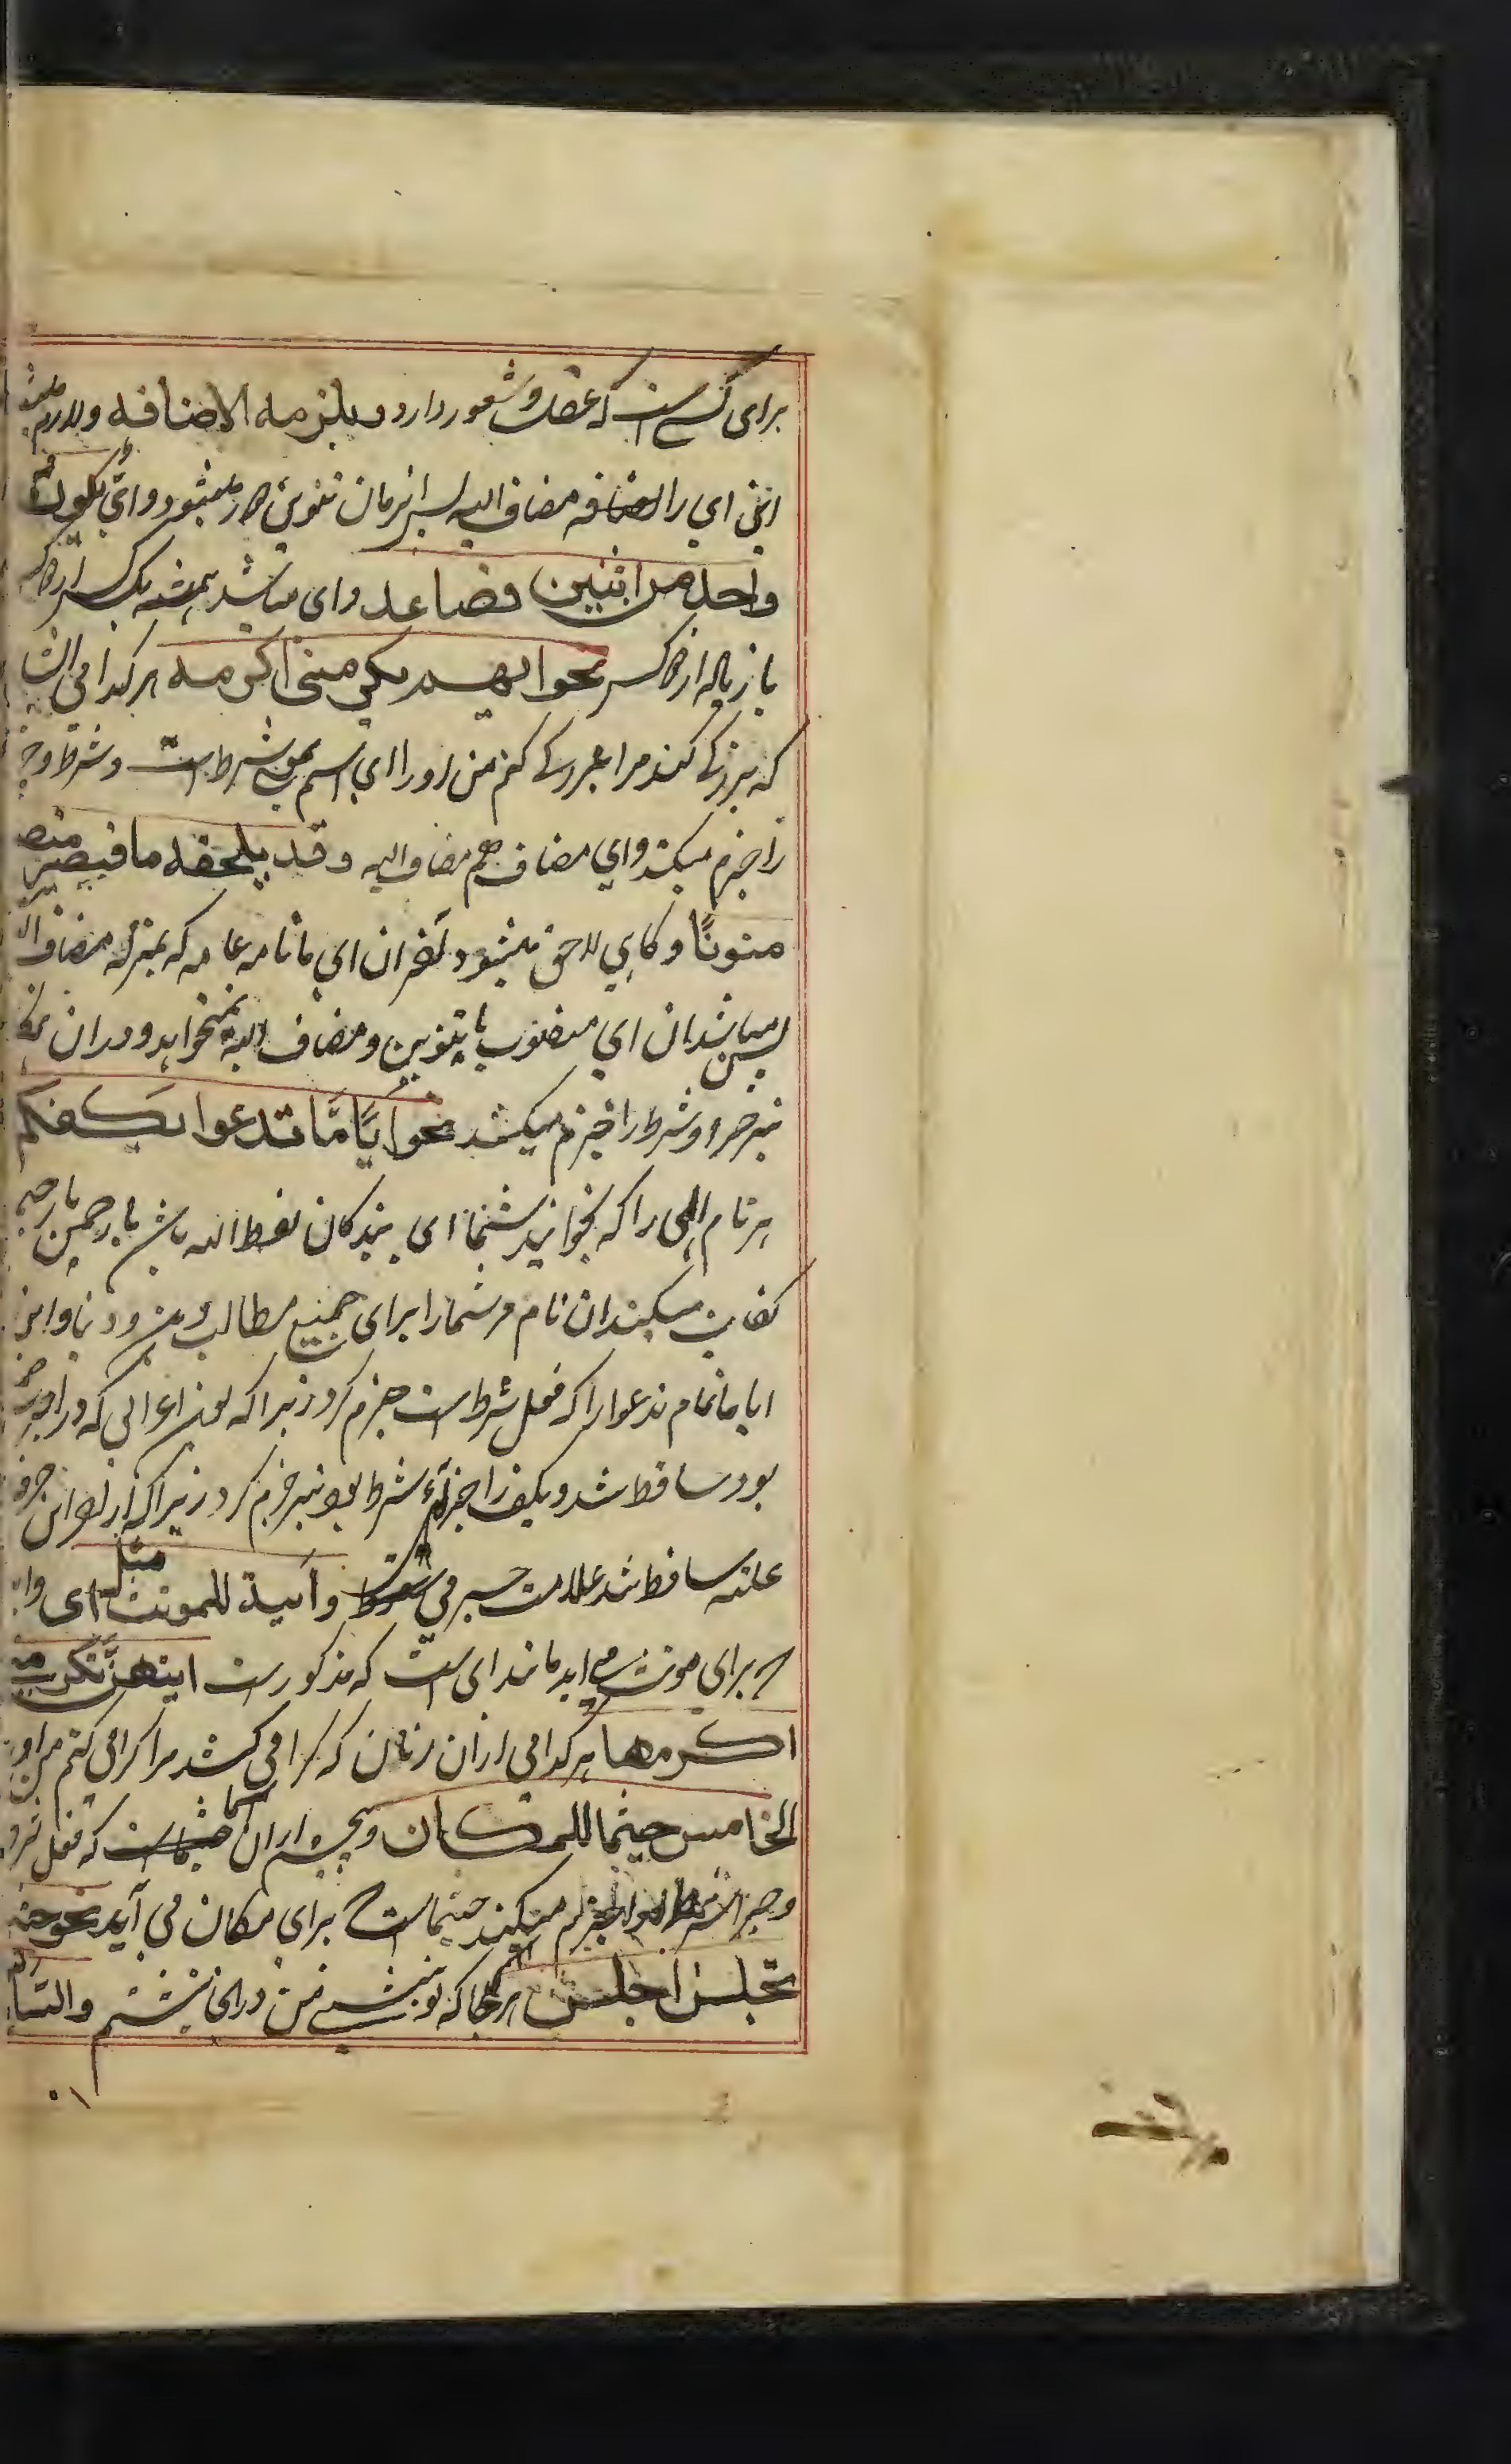 برای کسی است که عقل و شعور دارد و یلزمه الاضافه و لازم
این ای را اضافه مضاف الیه پس از زمان تنوین دور میشود و ای یکون
واحد من اثنین فصاعدا و ای میباشد همیشه یک کس از دو کس
یا زیاده از دو کس نحو ایهم یکرمنی اکرمه هر کدامی ایشان
که بزرگی کند مرا بزرگی کنم من او را ای اسم بمعنی شرط است و شرط و جزا
را جزم میکند و ای مضاف هم مضاف الیه و قد یلحقه ما فیصیر
منونًا و گاهی لاحق میشود آخر ان ای ما تامه عامه که بمنزله مضاف الیه
پس میباشد ان ای منصوب با تنوین و مضاف الیه نمیخواهد و دران
نیز جزا و شرط را جزم میکند نحو ایًّا مَّا تدعوا یکفکم
هر نام الهی را که بخوانید شما ای بندگان لفظ الله باشد یا رحمن یا رحیم
کفایت میکند ان نام مر شما را برای جمیع مطالب دین و دنیا و این
ایا ما تمام تدعوا را که فعل شرط است جزم کرد زیرا که نون اعرابی که در اخر
بود ساقط شد و یکف را جزاء شرط بود نیز جزم کرد زیرا که از اخر او حرف
علته ساقط شد علامت جزمی سقوط و أیة للمونث مثل ای و ایة
برای مونث می اید مانند ای است که مذکورست ایتهن تکرمنی
اکرمها هر کدامی ازان زنان که گرامی کند مرا گرامی کنم من او را
الخامس حیثما للمکان و پنجم ازان اسما حیثماست که فعل شرط
و جزا شرط را جزم میکند حیثماست برای مکان می آید نحو حیثما
تجلس اجلس هر جا که تو بنشینی من در انجا بنشینم و السادس